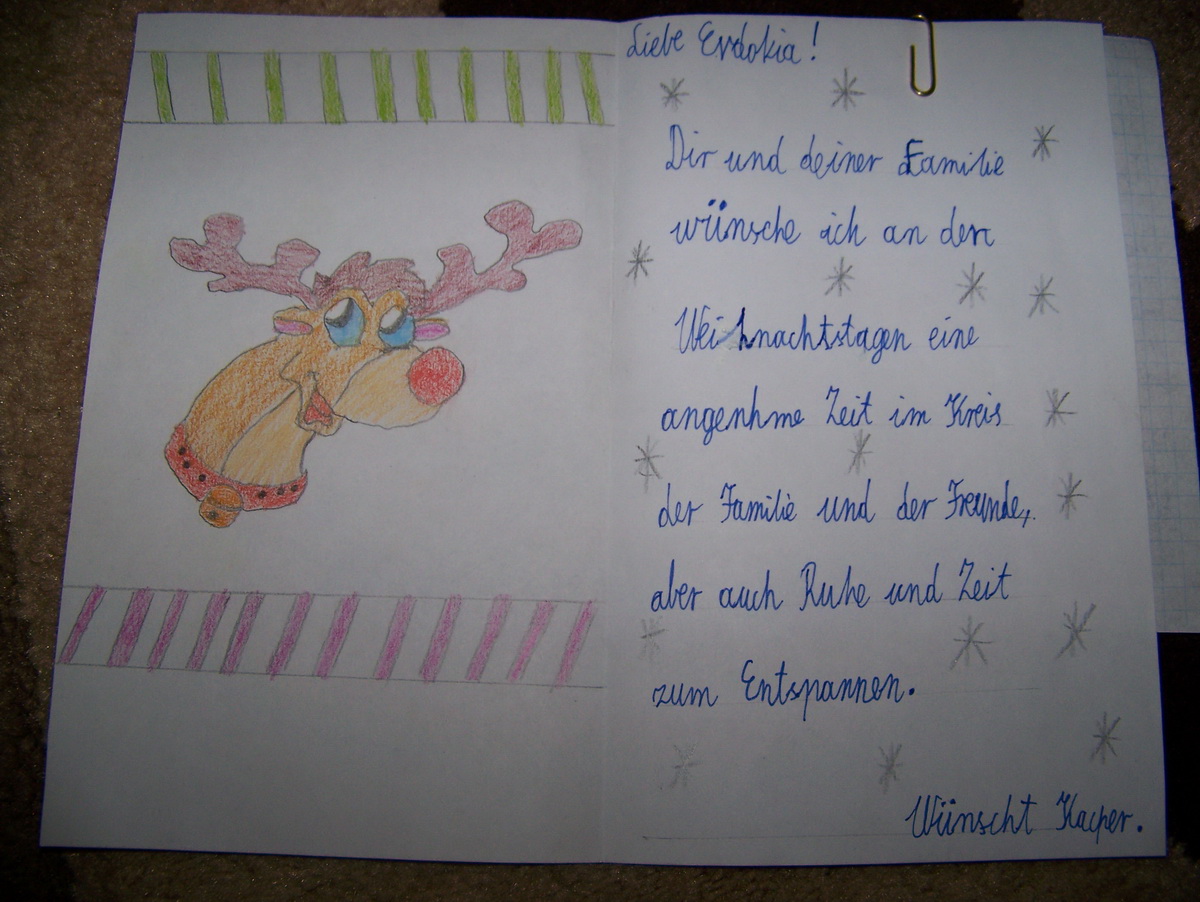 Liebe Evdokia!
Dir und deiner Familie
wünsche ich an den
Weihnachtstagen eine
angenhme Zeit im Kreis
der Familie und der Freunde,
aber auch Ruhe und Zeit
zum Entspannen.
Wünscht Kacper.